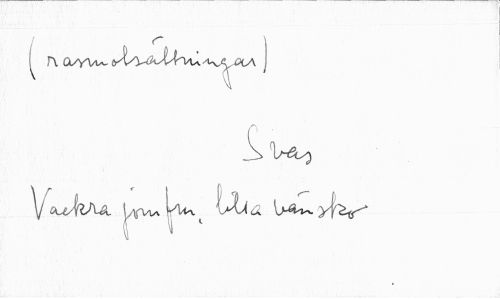 (rasmotsättningar)
Svas
Vackra jomfru, lilla vänsko